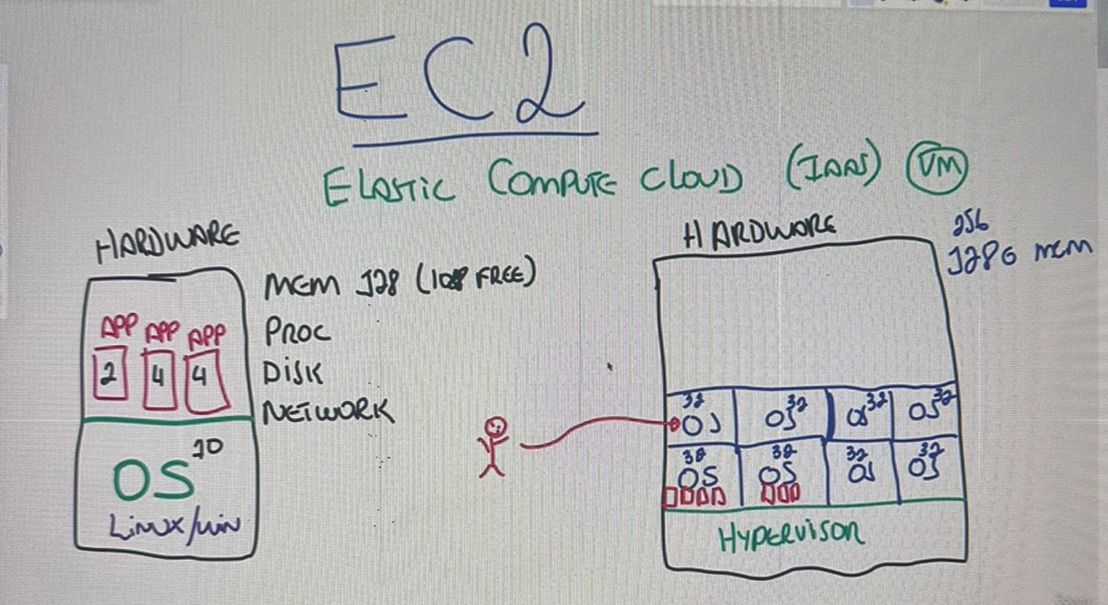 EC2
ELASTIC COMPUTE CLOUD (IAAS) VM
HARDWARE
MEM 128 (108 FREE)
PROC
DISK
NETWORK
APP APP APP
2 4 4
OS 10
LINUX/WIN
HARDWARE
256
128G MEM
32 32 32 32
OS OS OS OS
32 32 32 32
OS OS OS OS
HYPERVISOR